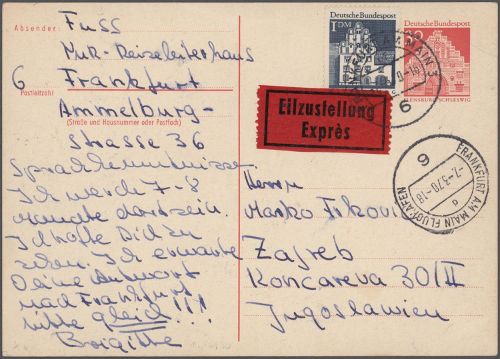 Absender:
Fuss
Reiseleiterhaus
6 Frankfurt
Postleitzahl
Ammelburg-
(Straße und Hausnummer oder Postfach)
strasse 36
Sprachkenntnisse
Ich werde 7-8
Monate dort sein.
Ich hoffe Dich zu
sehen. Ich erwarte
Deine Antwort
nach Frankfurt
bitte gleich!!!
Brigitte
Deutsche Bundespost
1 DM
Deutsche Bundespost
30
FLENSBURG/SCHLESWIG
FRANKFURT AM MAIN 3
6
Eilzustellung
Exprès
FRANKFURT AM MAIN FLUGHAFEN
6
-7.-3.70-18
a
Herrn
Marko
Zagreb
Koncareva 30/II
Jugoslawien